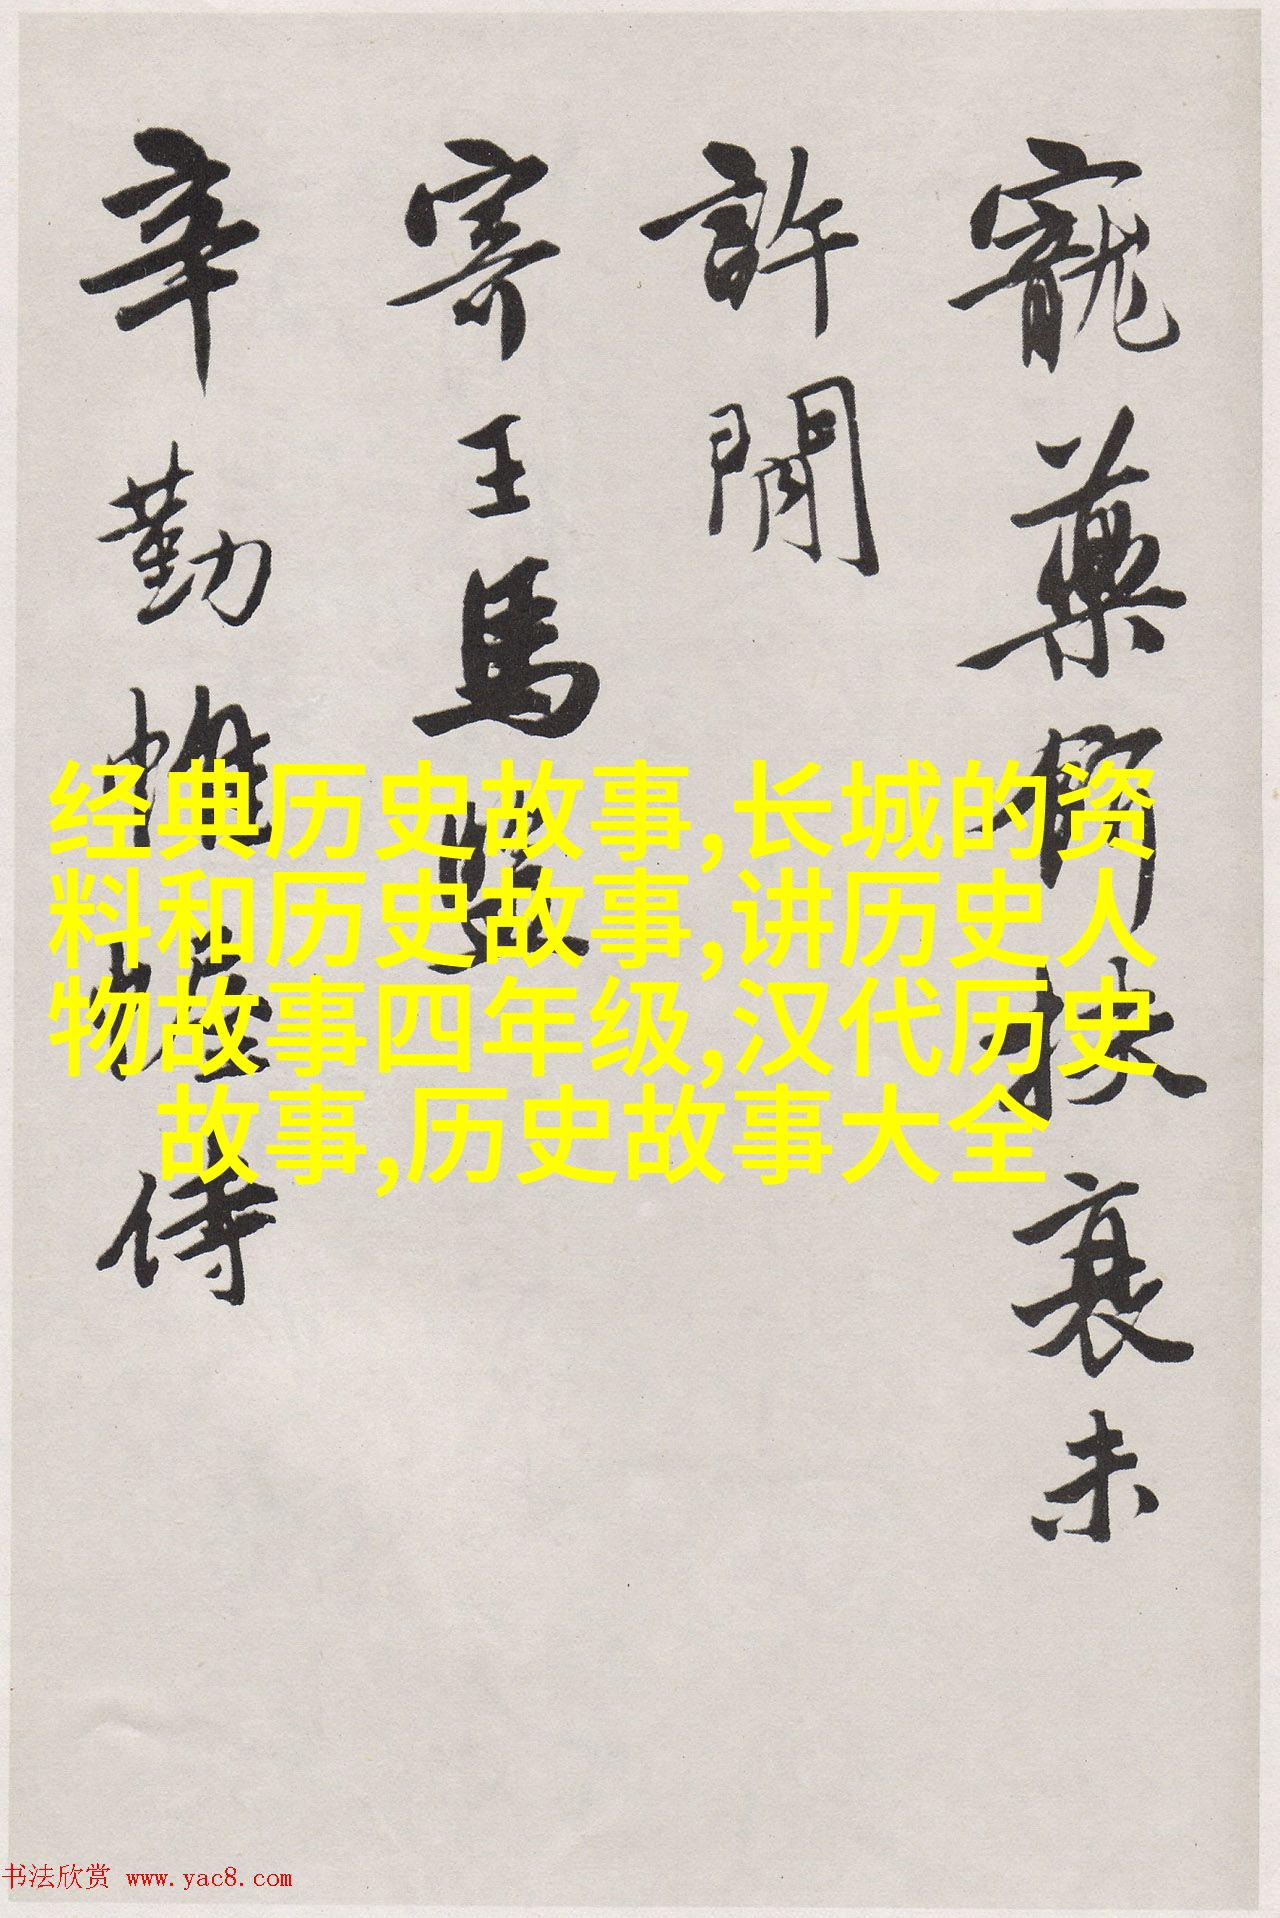 寵藥能扶衰未
許閒
寄王馬
辛勤惟幄侍
经典历史故事,长城的资
料和历史故事,讲历史人
物故事四年级,汉代历史
故事,历史故事大全
书法欣赏 www.yac8.com